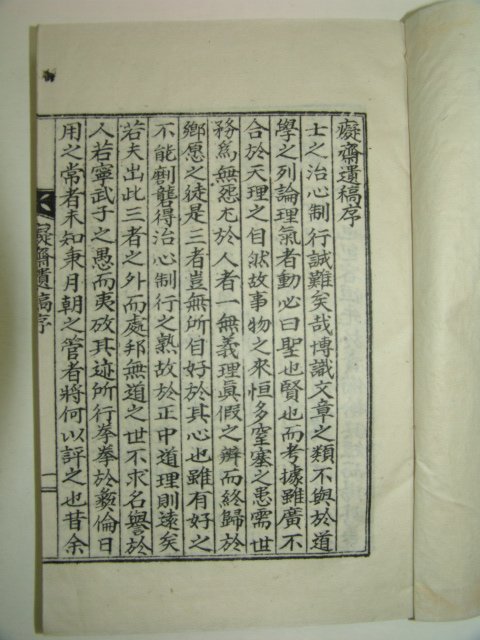 癡齋遺稿序
士之治心制行誠難矣哉博識文章之類不與於道
學之列論理氣者動必曰聖也賢也而考據雖廣不
合於天理之自然故事物之來恒多窒塞之患需世
務爲無怨尤於人者一無義理眞假之辨而終歸於
鄕愿之徒是三者豈無所自好於其心也雖有好之
不能劑讐得治心制行之熟故於正中道理則遠矣
若夫出此三者之外而處邦無道之世不求名譽於
人若寗武子之愚而夷攷其迹所行拳拳於彛倫日
用之常者未知秉月朝之管者將何以評之也昔余
癡齋遺稿序